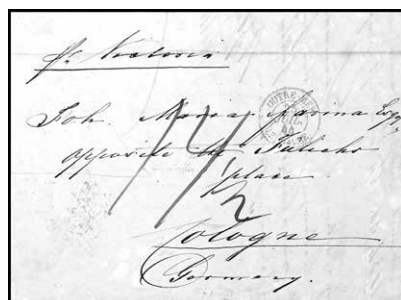 pr Victoria
Joh. Maria Farina Esqr
opposite the Julichs
place
Cologne
Germany.
OUTRE-MER